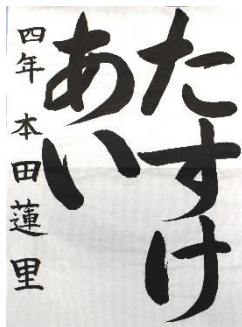 たすけ
あい
四年 本田蓮里